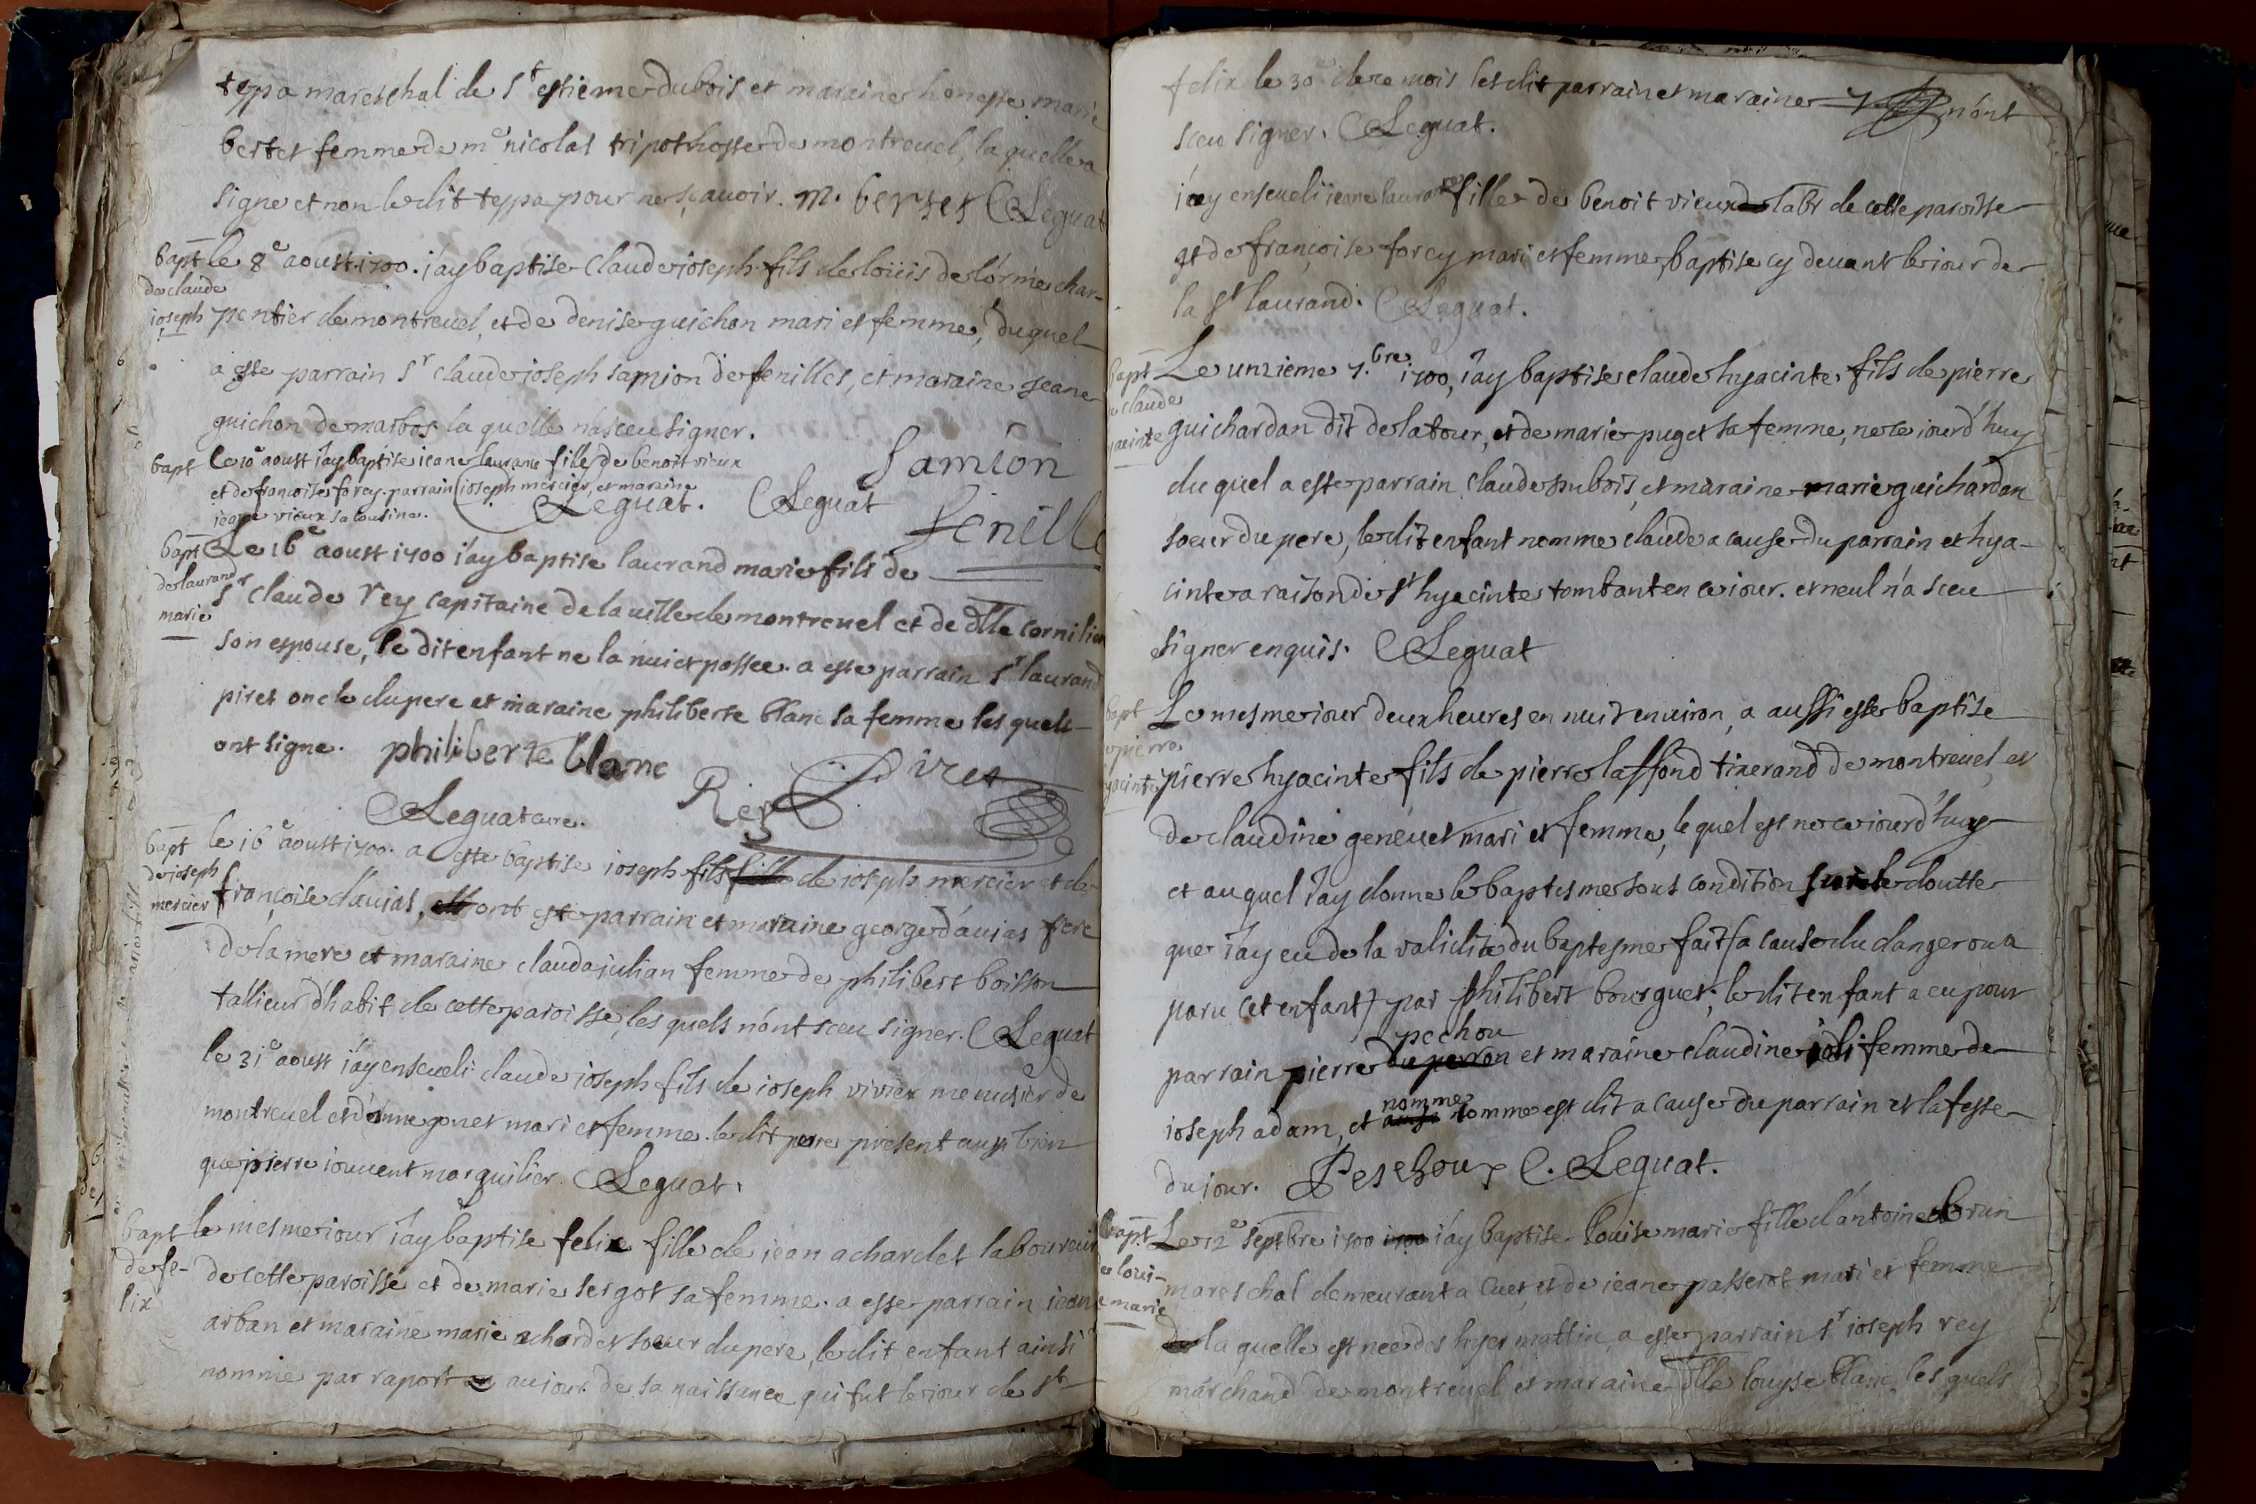 teppa mareschal de St estiene du bois et maraine honeste marie
bertet femme de me nicolas tripot hoste de montreuel, la quelle a
signe et non le dit teppa pour ne sçavoir. m. bertet Leguat
bapt de claude joseph
le 8e aoust 1700. i'ay baptise Claude joseph fils de loüis de lorme char-
pentier de montreuel, et de denise guichon mari et femme, duquel
a este parrain Sr claude joseph samion de fenilles, et maraine jeane
guichon de marbos la quelle n'a sceu signer.
Samion
bapt
le 10e aoust i'ay baptise ieane laurane fille de benoit vieux
et de francoise forey. parrain joseph mercier, et maraine
jeane vieux sa cousine. Leguat. Leguat
Fenille
bapt de laurand marie
Le 16e aoust 1700 i'ay baptise laurand marie fils de
Sr claude rey capitaine de la ville de montreuel et de dlle cornilion
son espouse, le dit enfant ne la nuict passee. a este parrain Sr laurand
piret oncle du pere et maraine philiberte blanc sa femme les quels
ont signe. philiberte blanc
Rey Piret
Leguat cure.
bapt de joseph mercier
le 16e aoust 1700. a este baptise joseph fils fille de joseph mercier et de
françoise daujas, ont este parrain et maraine george daujas frere
de la mere et maraine clauda julian femme de philibert boisson
tallieur d'habit de cette paroisse, les quels n'ont sceu signer. Leguat
le 31e aoust i'ay enseueli claude joseph fils de joseph vivier menusier de
montreuel et d'anne gonet mari et femme. le dit pere present aussi bien
que pierre iouuent marguilier. Leguat.
bapt de felix
le mesme iour i'ay baptise felix fille de jean achardet laboureur
de cette paroisse et de marie sergot sa femme. a este parrain jean
arban et maraine marie achardet soeur du pere, le dit enfant ainsi
nomme par raport au jour de sa naissance qui fut le iour de St
felix le 30e de ce mois les dit parrain et maraine n'ont
sceu signer. Leguat.
i'ay enseueli ieane laurane fille de benoit vieux labr de cette paroisse
et de françoise forey mari et femme, baptise cy deuant le iour de
la St laurand. Leguat.
bapt de claude jacinte
Le unzieme 7.bre 1700, i'ay baptise claude hyacinte fils de pierre
guichardan dit de la tour, et de marie puget sa femme, ne ce iourd'huy
du quel a este parrain claude dubois, et maraine marie guichardan
soeur du pere, le dit enfant nomme claude a cause du parrain et hya-
cinte a raison de St hyacinte tombant en ce iour. et neul n'a sceu
signer enquis. Leguat
bapt de pierre jacinte
Le mesme iour deux heures en nuit enuiron, a aussi este baptise
pierre hyacinte fils de pierre laffond tixerand de montreuel, et
de claudine geneuet mari et femme, le quel est ne ce iourd'huy
et au quel i'ay donne le baptesme sous condition sur le doutte
que i'ay eu de la validite du baptesme fait (a cause du danger ou a
paru cet enfant) par philibert bourguet; le dit enfant a eu pour
pechou
parrain pierre du perron et maraine claudine joli femme de
nomme
joseph adam, et ainsi nomme est dit a cause du parrain et la feste
du jour. Peschoux Leguat.
bapt de louise marie
Le 12e septbre 1700 1700 i'ay baptise louise marie fille d'antoine brun
mareschal demeurant a cuet, et de jeane passerot mari et femme
la quelle est nee des hyer mattin, a este parrain Sr joseph rey
marchand de montreuel et maraine dlle louyse blanc, les quels